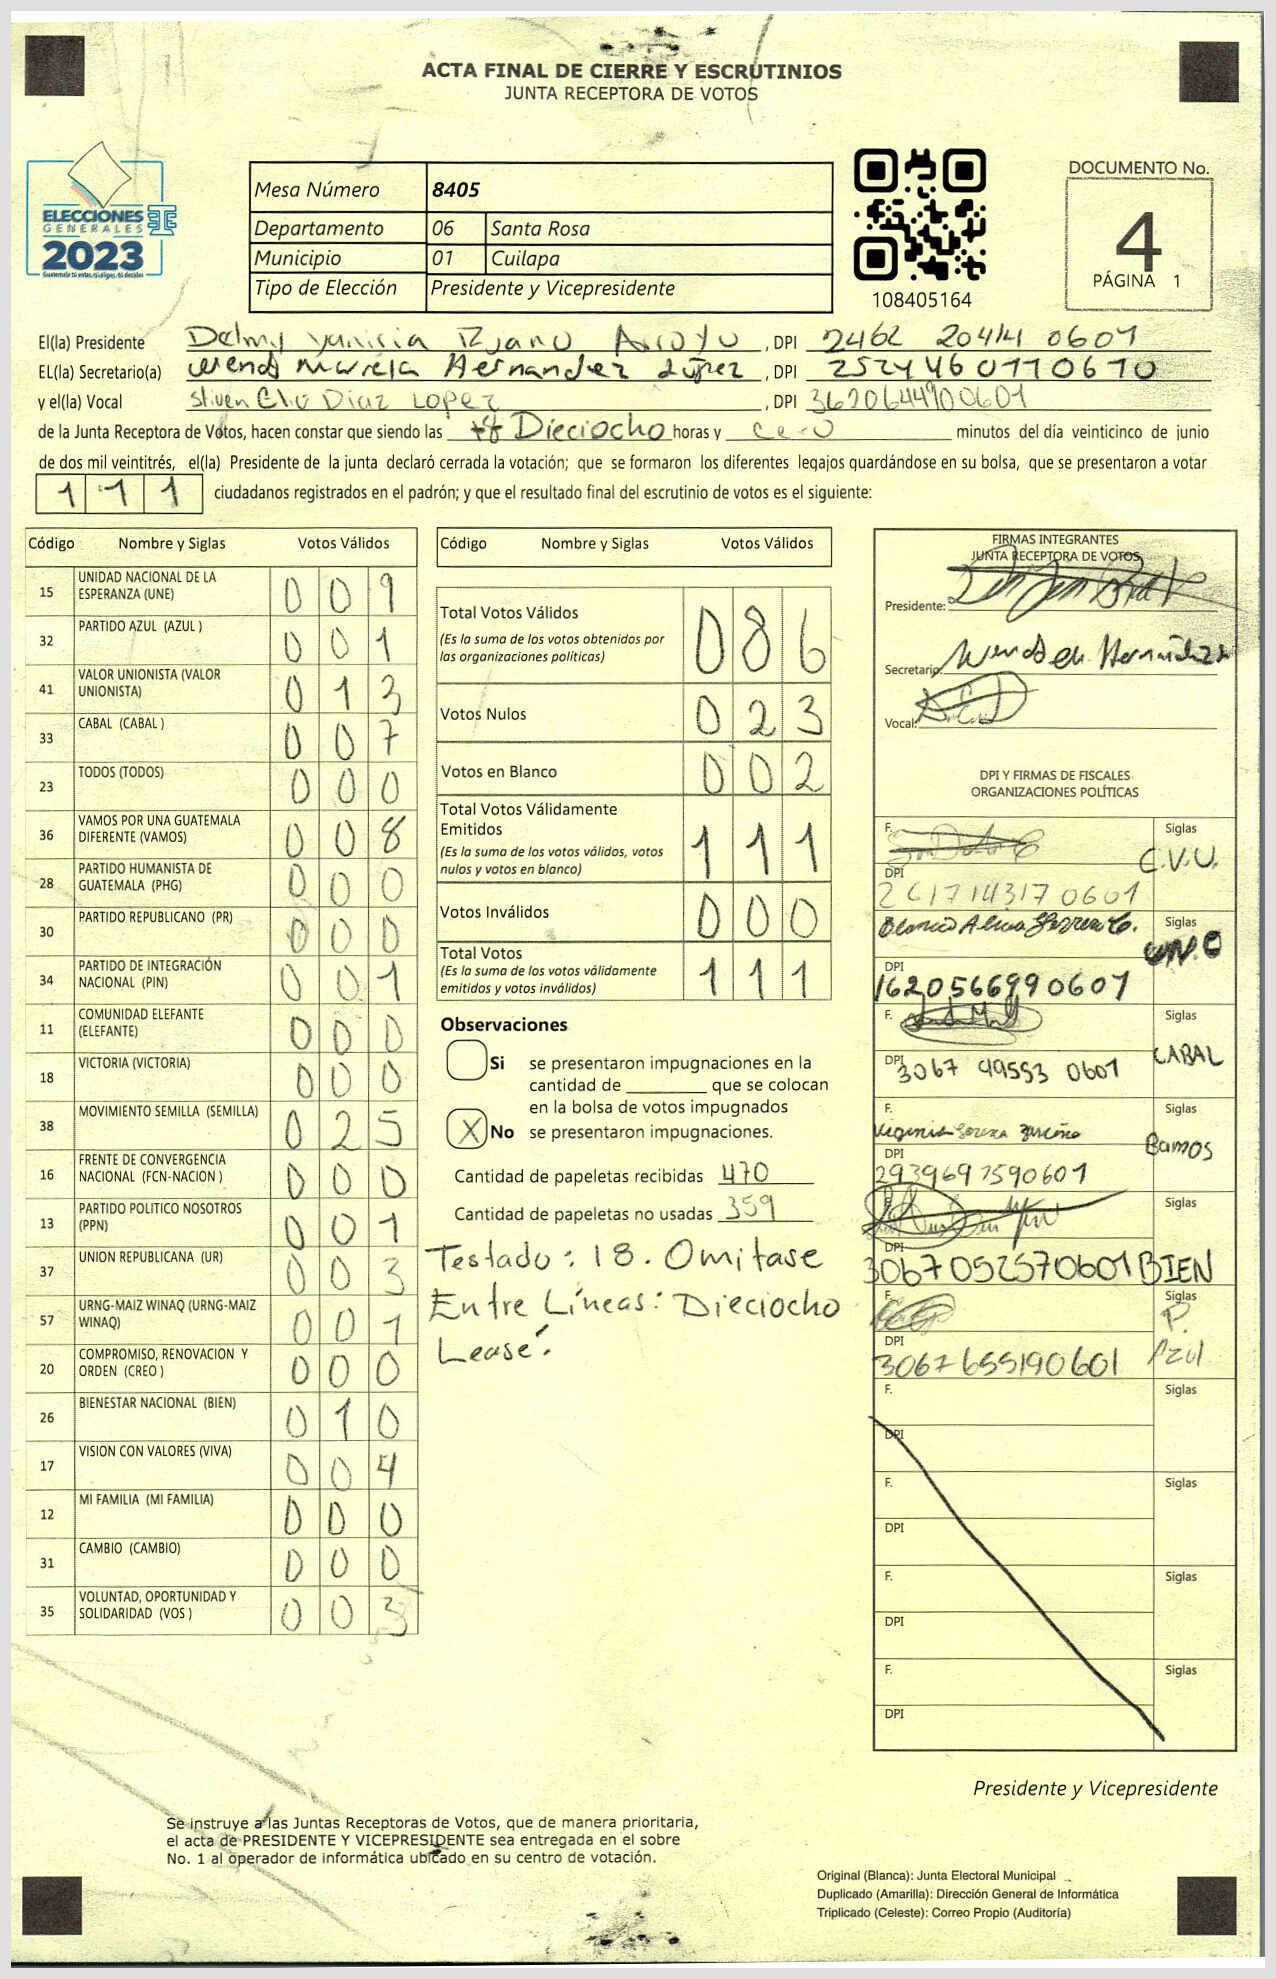 ACTA FINAL DE CIERRE Y ESCRUTINIOS
JUNTA RECEPTORA DE VOTOS
ELECCIONES
GENERALES
2023
Mesa Número 8405
Departamento 06 Santa Rosa
Municipio 01 Cuilapa
Tipo de Elección Presidente y Vicepresidente
108405164
DOCUMENTO No.
4
PÁGINA 1
El(la) Presidente , DPI 2462 20414 0601
EL(la) Secretario(a) Hernandez López , DPI
y el(la) Vocal Stiven Diaz Lopez , DPI 3620644900601
de la Junta Receptora de Votos, hacen constar que siendo las Dieciocho horas y cero minutos del día veinticinco de junio
de dos mil veintitrés, el(la) Presidente de la junta declaró cerrada la votación; que se formaron los diferentes legajos guardándose en su bolsa, que se presentaron a votar
111 ciudadanos registrados en el padrón; y que el resultado final del escrutinio de votos es el siguiente:
Código Nombre y Siglas Votos Válidos
15 UNIDAD NACIONAL DE LA ESPERANZA (UNE) 009
32 PARTIDO AZUL (AZUL ) 001
41 VALOR UNIONISTA (VALOR UNIONISTA) 013
33 CABAL (CABAL ) 007
23 TODOS (TODOS) 000
36 VAMOS POR UNA GUATEMALA DIFERENTE (VAMOS) 008
28 PARTIDO HUMANISTA DE GUATEMALA (PHG) 000
30 PARTIDO REPUBLICANO (PR) 000
34 PARTIDO DE INTEGRACIÓN NACIONAL (PIN) 001
11 COMUNIDAD ELEFANTE (ELEFANTE) 000
18 VICTORIA (VICTORIA) 000
38 MOVIMIENTO SEMILLA (SEMILLA) 025
16 FRENTE DE CONVERGENCIA NACIONAL (FCN-NACION ) 000
13 PARTIDO POLITICO NOSOTROS (PPN) 001
37 UNION REPUBLICANA (UR) 003
57 URNG-MAIZ WINAQ (URNG-MAIZ WINAQ) 001
20 COMPROMISO, RENOVACION Y ORDEN (CREO ) 000
26 BIENESTAR NACIONAL (BIEN) 010
17 VISION CON VALORES (VIVA) 004
12 MI FAMILIA (MI FAMILIA) 000
31 CAMBIO (CAMBIO) 000
35 VOLUNTAD, OPORTUNIDAD Y SOLIDARIDAD (VOS ) 003
Código Nombre y Siglas Votos Válidos
Total Votos Válidos 086
(Es la suma de los votos obtenidos por
las organizaciones politicas)
Votos Nulos 023
Votos en Blanco 002
Total Votos Válidamente
Emitidos 111
(Es la suma de los votos válidos, votos
nulos y votos en blanco)
Votos Inválidos 000
Total Votos 111
(Es la suma de los votos válidamente
emitidos y votos inválidos)
Observaciones
Si se presentaron impugnaciones en la
cantidad de ________ que se colocan
en la bolsa de votos impugnados
X No se presentaron impugnaciones.
Cantidad de papeletas recibidas 470
Cantidad de papeletas no usadas 359
Testado: 18. Omitase
Entre Líneas: Dieciocho
Lease.
FIRMAS INTEGRANTES
JUNTA RECEPTORA DE VOTOS
Presidente:
Secretario:
Vocal:
DPI Y FIRMAS DE FISCALES
ORGANIZACIONES POLÍTICAS
F. Siglas
C.V.U.
DPI
261714317 0601
Siglas
DPI
1620566990601
F. Siglas
CABAL
DPI
3067 49553 0601
F. Siglas
Bamos
DPI
2939697590601
Siglas
BIEN
DPI
3067052570601
F. Siglas
P.
Azul
DPI
3067655190601
F. Siglas
DPI
F. Siglas
DPI
F. Siglas
DPI
F. Siglas
DPI
Presidente y Vicepresidente
Se instruye a las Juntas Receptoras de Votos, que de manera prioritaria,
el acta de PRESIDENTE Y VICEPRESIDENTE sea entregada en el sobre
No. 1 al operador de informática ubicado en su centro de votación.
Original (Blanca): Junta Electoral Municipal
Duplicado (Amarilla): Dirección General de Informática
Triplicado (Celeste): Correo Propio (Auditoría)